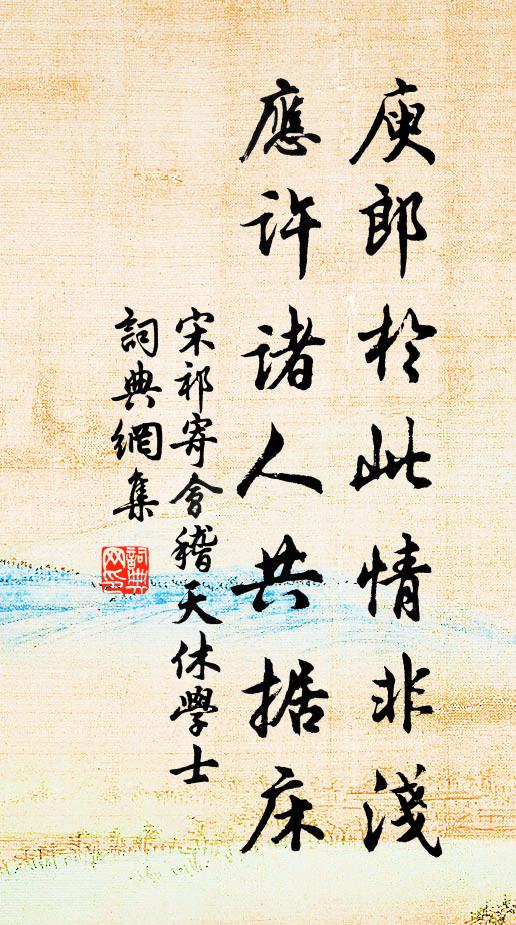 庾郎於此情非淺
應許諸人共据床
宋祁寄會稽天休學士
詞典網集
詞典网印